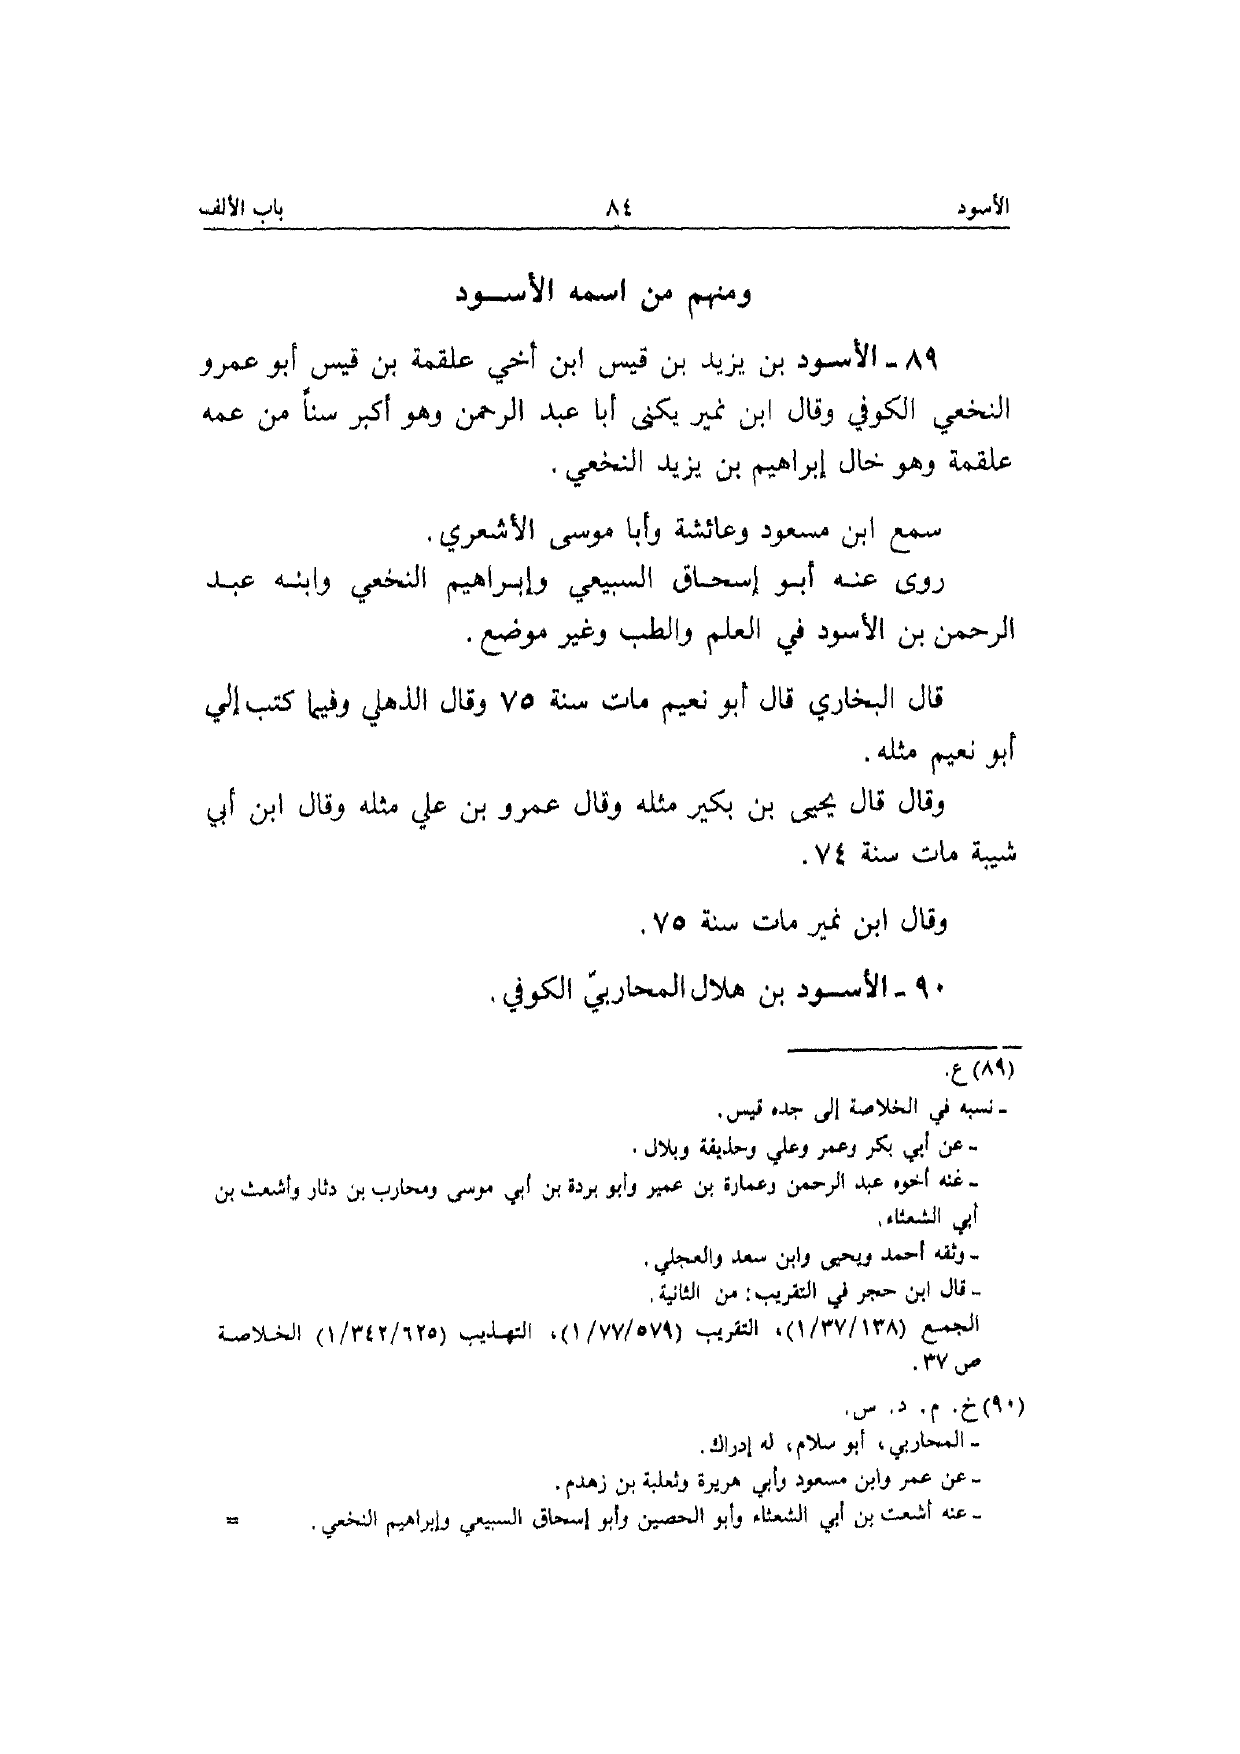 الأسود ٨٤ باب الألف
ومنهم من اسمه الأسـود
٨٩ ـ الأسـود بن يزيد بن قيس ابن أخي علقمة بن قيس أبو عمرو
النخعي الكوفي وقال ابن نمير يكنى أبا عبد الرحمن وهو أكبر سناً من عمه
علقمة وهو خال إبراهيم بن يزيد النخعي .
سمع ابن مسعود وعائشة وأبا موسى الأشعري .
روى عنـه أبـو إسحـاق السبيعي وإبـراهيم النخعي وابنـه عبـد
الرحمن بن الأسود في العلم والطب وغير موضع .
قال البخاري قال أبو نعيم مات سنة ٧٥ وقال الذهلي وفيما كتب إلي
أبو نعيم مثله .
وقال قال يحيى بن بكير مثله وقال عمرو بن علي مثله وقال ابن أبي
شيبة مات سنة ٧٤ .
وقال ابن نمير مات سنة ٧٥ .
٩٠ ـ الأسـود بن هلال المحاربيّ الكوفي .
(٨٩) ع .
ـ نسبه في الخلاصة إلى جده قيس .
ـ عن أبي بكر وعمر وعلي وحذيفة وبلال .
ـ غنه أخوه عبد الرحمن وعمارة بن عمير وأبو بردة بن أبي موسى ومحارب بن دثار وأشعث بن
أبي الشعثاء .
ـ وثقه أحمد ويحيى وابن سعد والعجلي .
ـ قال ابن حجر في التقريب : من الثانية .
الجمع (١/٣٧/١٣٨)، التقريب (١/٧٧/٥٧٩)، التهذيب (١/٣٤٢/٦٢٥) الخلاصة
ص ٣٧ .
(٩٠) خ . م . د . س .
ـ المحاربي ، أبو سلام ، له إدراك .
ـ عن عمر وابن مسعود وأبي هريرة وثعلبة بن زهدم .
ـ عنه أشعث بن أبي الشعثاء وأبو الحصين وأبو إسحاق السبيعي وإبراهيم النخعي . =